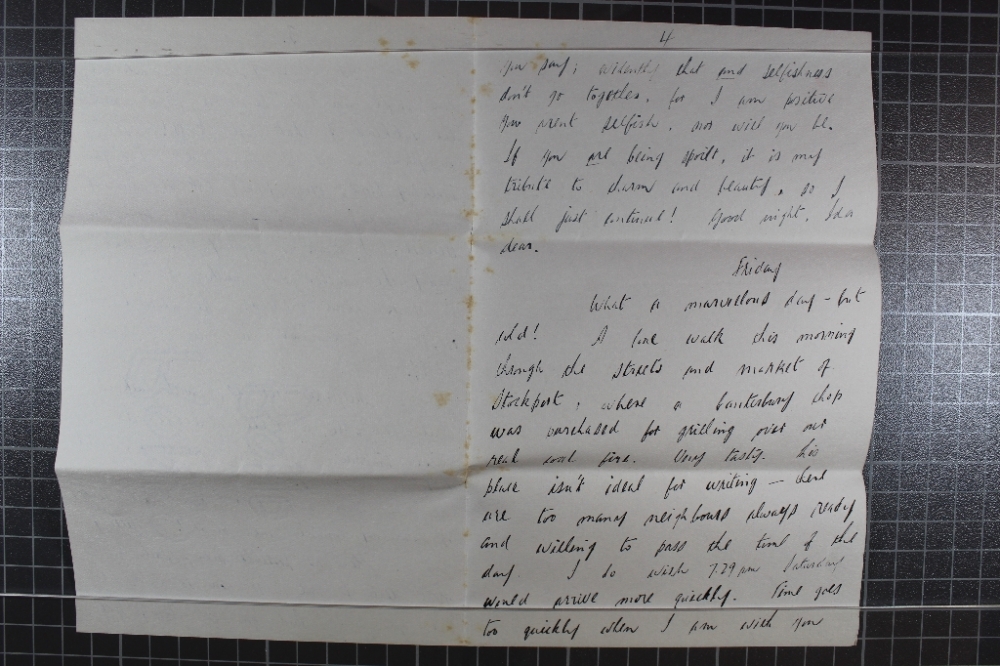 4
you say; evidently that and selfishness
don't go together. for I am positive
you arent selfish. nor will you be.
If you are being spoilt, it is my
tribute to charm and beauty, so I
shall just continue! Good night, Ida
dear.
Friday
What a marvellous day - but
cold! A fine walk this morning
through the streets and market of
Stockport, where a Canterbury chop
was purchased for grilling over our
real coal fire. Very tasty. This
place isn't ideal for writing - there
are too many neighbours always ready
and willing to pass the time of the
day. I do wish 7.29 pm Saturday
would arrive more quickly. Time goes
too quickly when I am with you